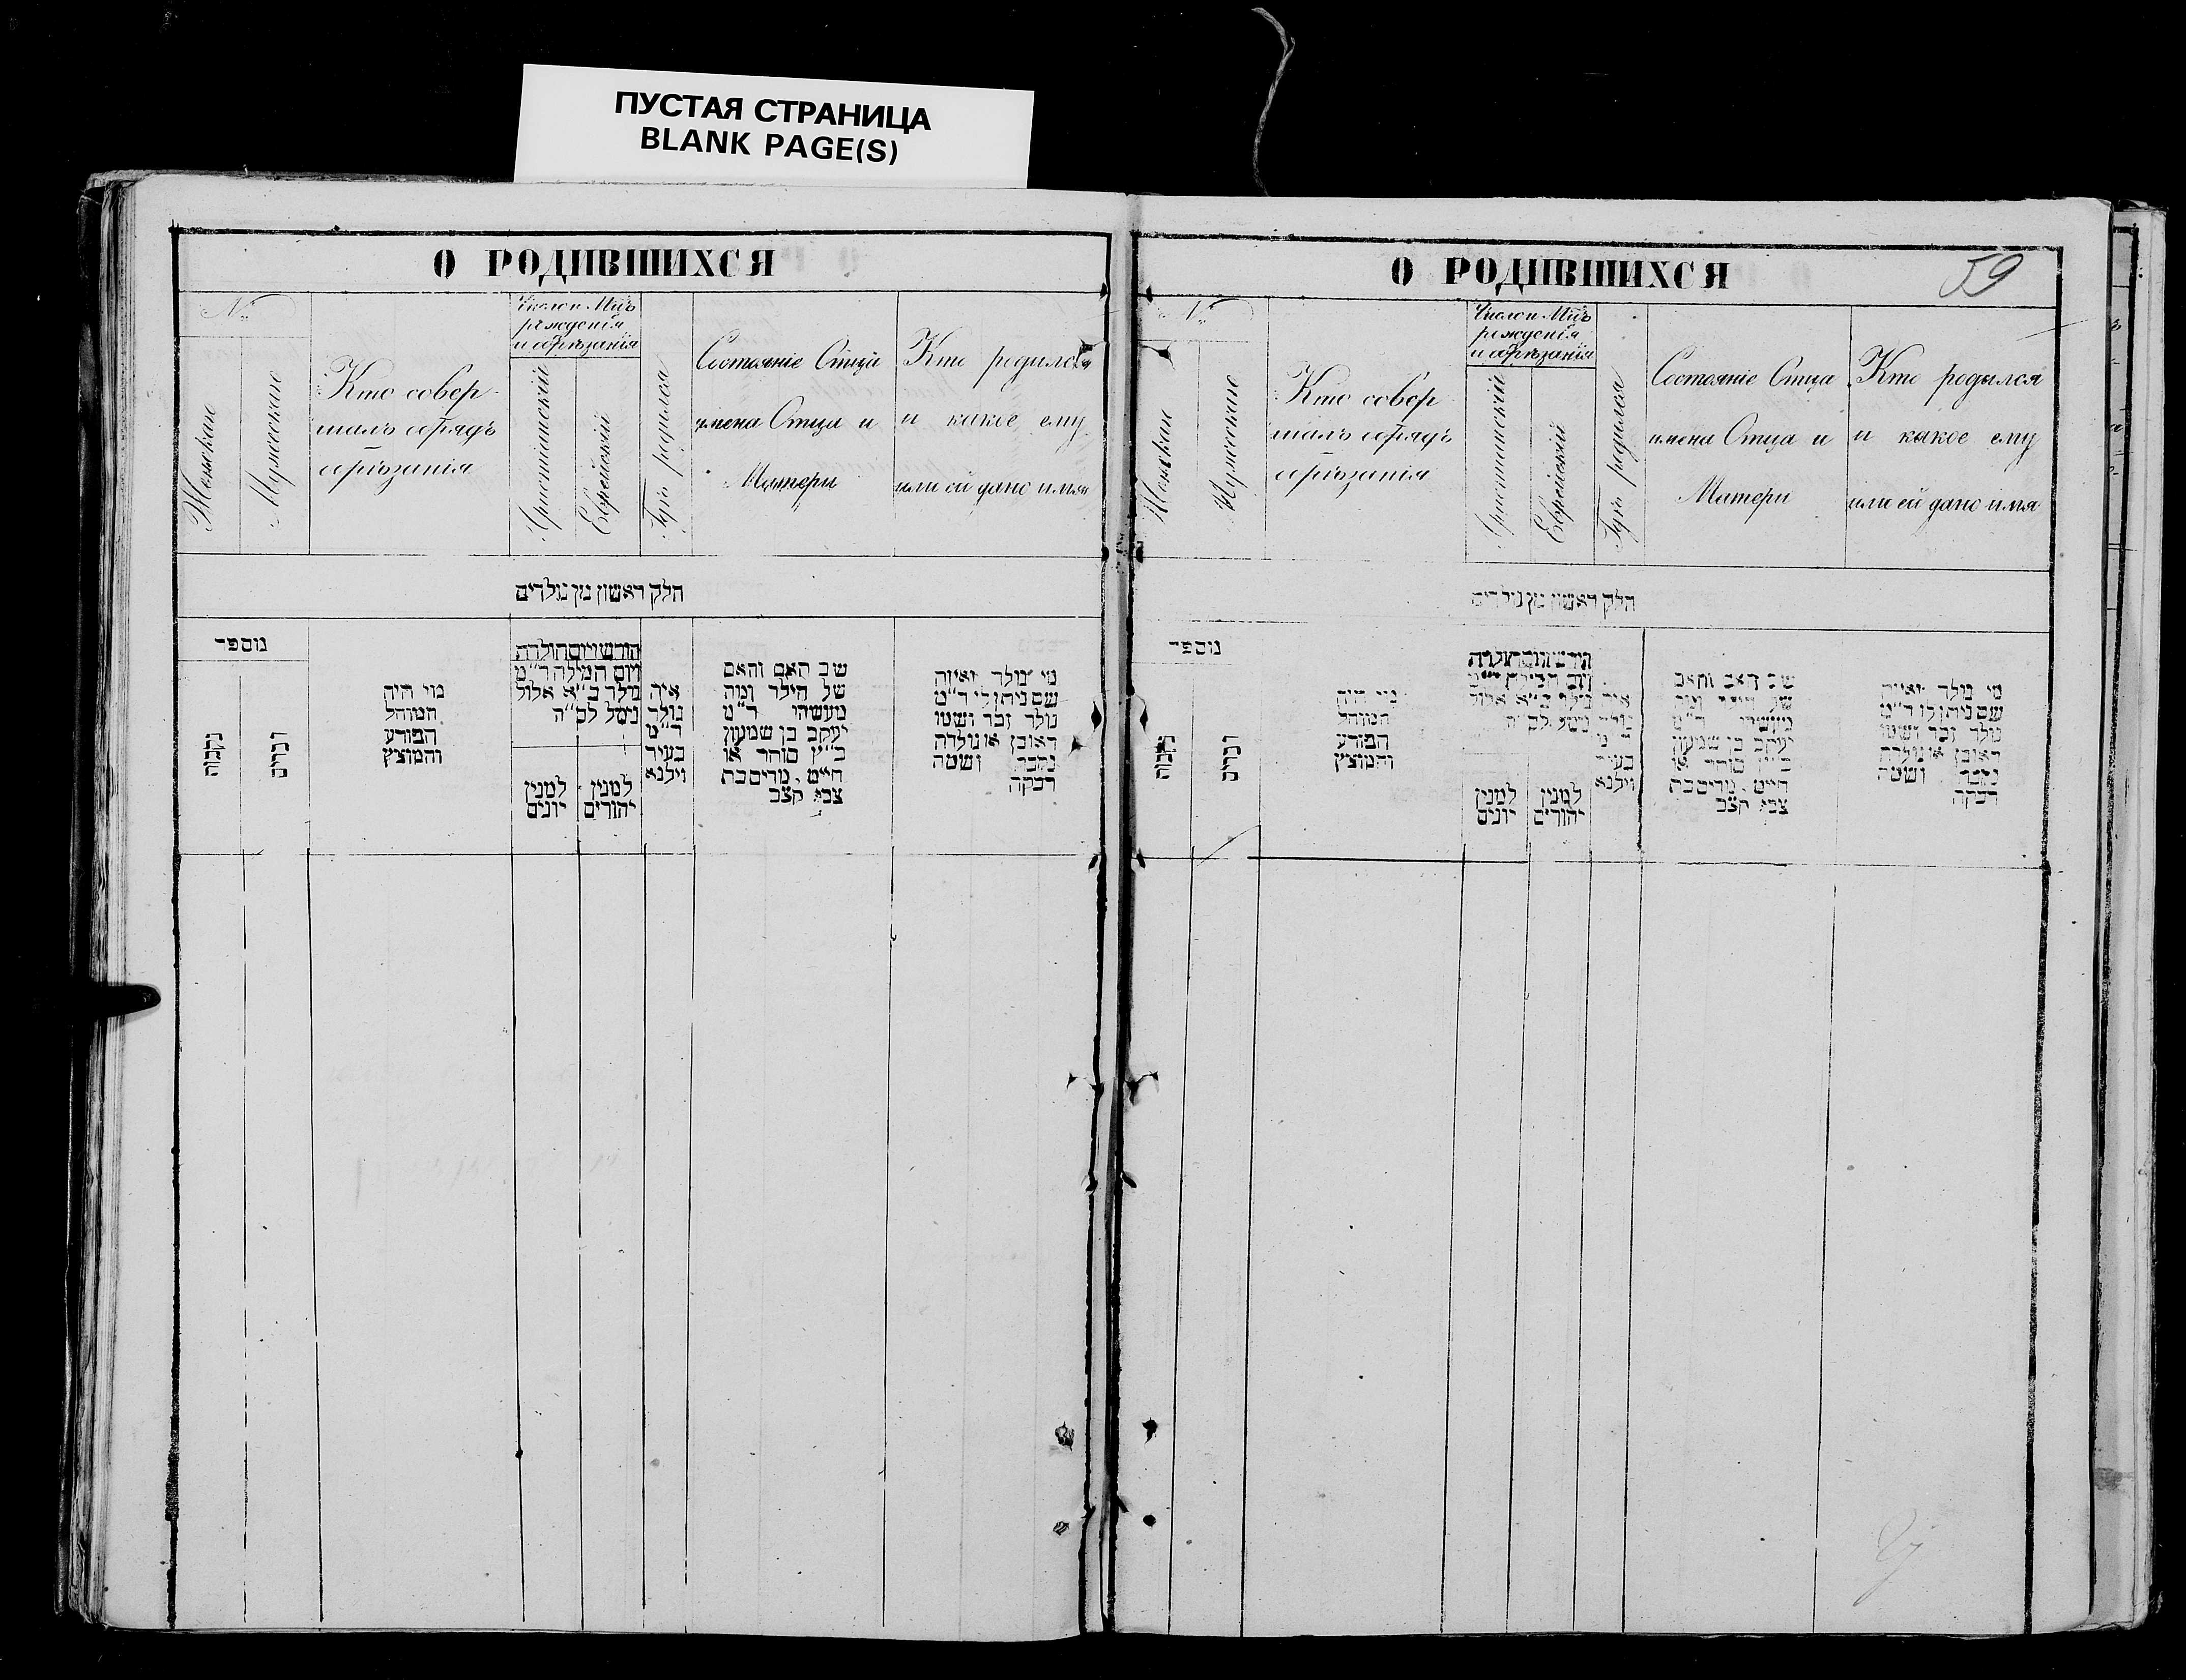 ПУСТАЯ СТРАНИЦА
BLANK PAGE(S)
О РОДИВШИХСЯ
№
Женскаго
Мужескаго
Кто совер-
шалъ обрядъ
обрѣзанія
Число и Мцъ
рожденія
и обрѣзанія
Христіанскій
Еврейскій
Гдѣ родился
Состояніе Отца
имена Отца и
Матери
Кто родился
и какое ему
или ей дано имя
חלק ראשון מן נולדים
מוספר
נקבות
זכרים
מי היה
המוהל
הפורע
והמוצץ
חודש ויום הולדת
ויום המילה ד"מ
נולד כ"א אלול
נימל לס"ה
למנין
יונים
למנין
יהודים
איה
נולד
ד"מ
בעיר
וילנא
שב האם והאם
של הילד ומה
מעשהו ד"מ
יעקב בן שמעון
כ"ץ סוחר או
חייט. מרים בת
צבי קצב
מי נולד ואיזה
שם ניתן לו ד"מ
נולד זכר ושמו
ראובן או נולדת
נקבה ושמה
רבקה
О РОДИВШИХСЯ
59
№
Женскаго
Мужескаго
Кто совер-
шалъ обрядъ
обрѣзанія
Число и Мцъ
рожденія
и обрѣзанія
Христіанскій
Еврейскій
Гдѣ родился
Состояніе Отца
имена Отца и
Матери
Кто родылся
и какое ему
или ей дано имя
חלק ראשון מן נולדים
מוספר
נקבות
זכרים
מי היה
המוהל
הפורע
והמוצץ
חודש ויום הולדת
ויום המילה ד"מ
נולד כ"א אלול
נימל לס"ה
למנין
יונים
למנין
יהודים
איה
נולד
ד"מ
בעיר
וילנא
שב האב והאם
של הילד ומה
מעשהו ד"מ
יעקב בן שמעון
כ"ץ סוחר או
חייט. מרים בת
צבי קצב
מי נולד ואיזה
שם ניתן לו ד"מ
נולד זכר ושמו
ראובן או נולדת
נקבה ושמה
רבקה